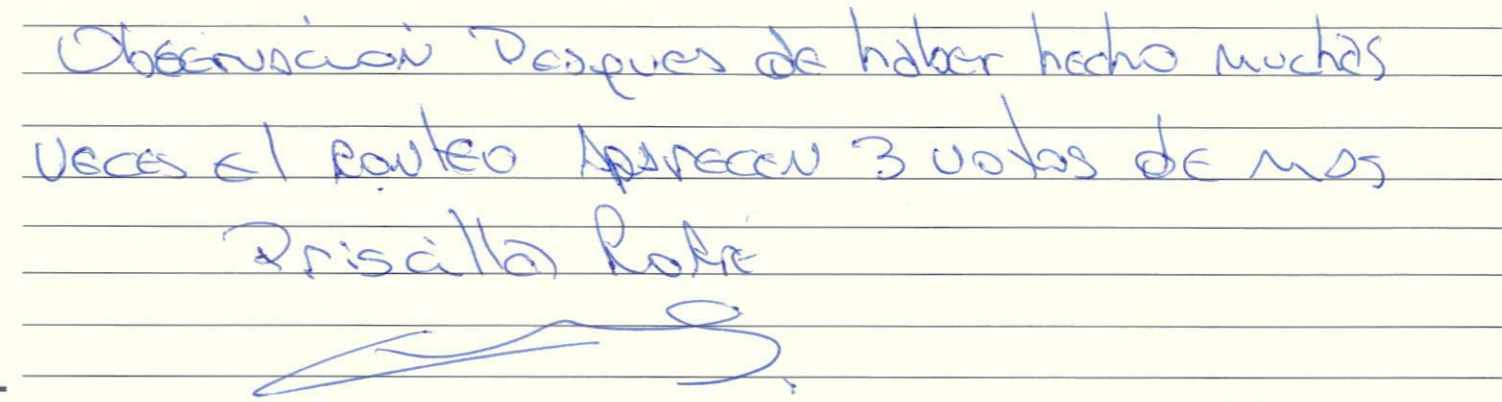 Observacion Despues de haber hecho muchas
veces el conteo Aparecen 3 votos de mas
Priscilla